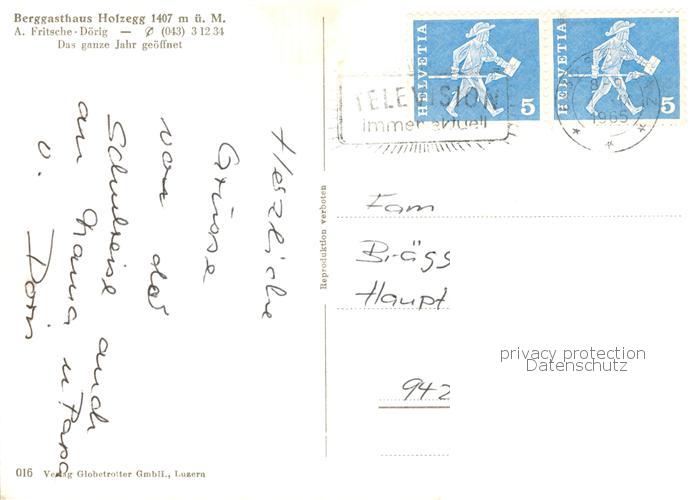 Berggasthaus Hofzegg 1407 m ü. M.
A. Fritsche-Dörig — ✆ (043) 3 12 34
Das ganze Jahr geöffnet
Herzliche
Grüsse
von der
Schulreise auch
an Mama u Papa
v. Doris
016 Verlag Globetrotter GmbH., Luzern
Reproduktion verboten
HELVETIA
5
HELVETIA
5
TELEVISION
immer aktuell
1965
Fam
Brägg
Haupt
942
privacy protection
Datenschutz